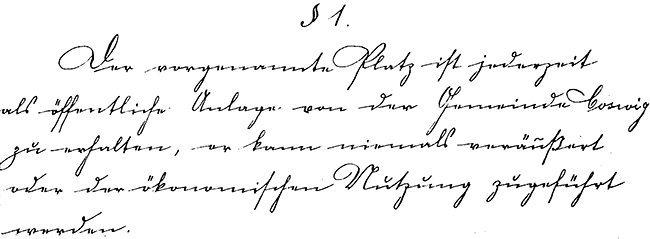 § 1.
Der vorgenannte Platz ist jederzeit
als öffentliche Anlage von der Gemeinde Coswig
zu erhalten, er kann niemals veräußert
oder der ökonomischen Nutzung zugeführt
werden.